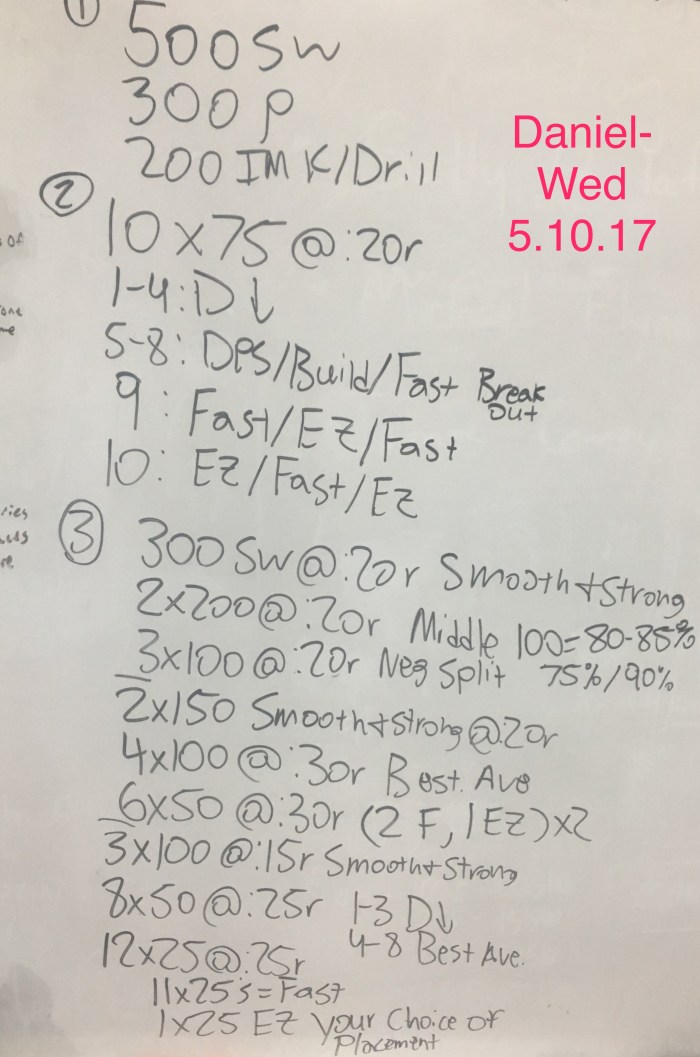 1
500 SW
300 P
200 IM K/Drill
Daniel-
Wed
5.10.17
2
10 x 75 @ :20r
1-4: D↓
5-8: DPS/Build/Fast Break
Out
9: Fast/EZ/Fast
10: EZ/Fast/EZ
3
300 SW @ :20r Smooth + Strong
2x200 @ :20r Middle 100 = 80-85%
3x100 @ :20r Neg Split 75%/90%
2x150 Smooth + Strong @ 20r
4x100 @ :30r Best Ave
6x50 @ :30r (2 F, 1 EZ) x2
3x100 @ :15r Smooth + Strong
8x50 @ :25r 1-3 D↓
4-8 Best Ave.
12x25 @ :25r
11x25's = Fast
1x25 EZ your Choice of
Placement
of